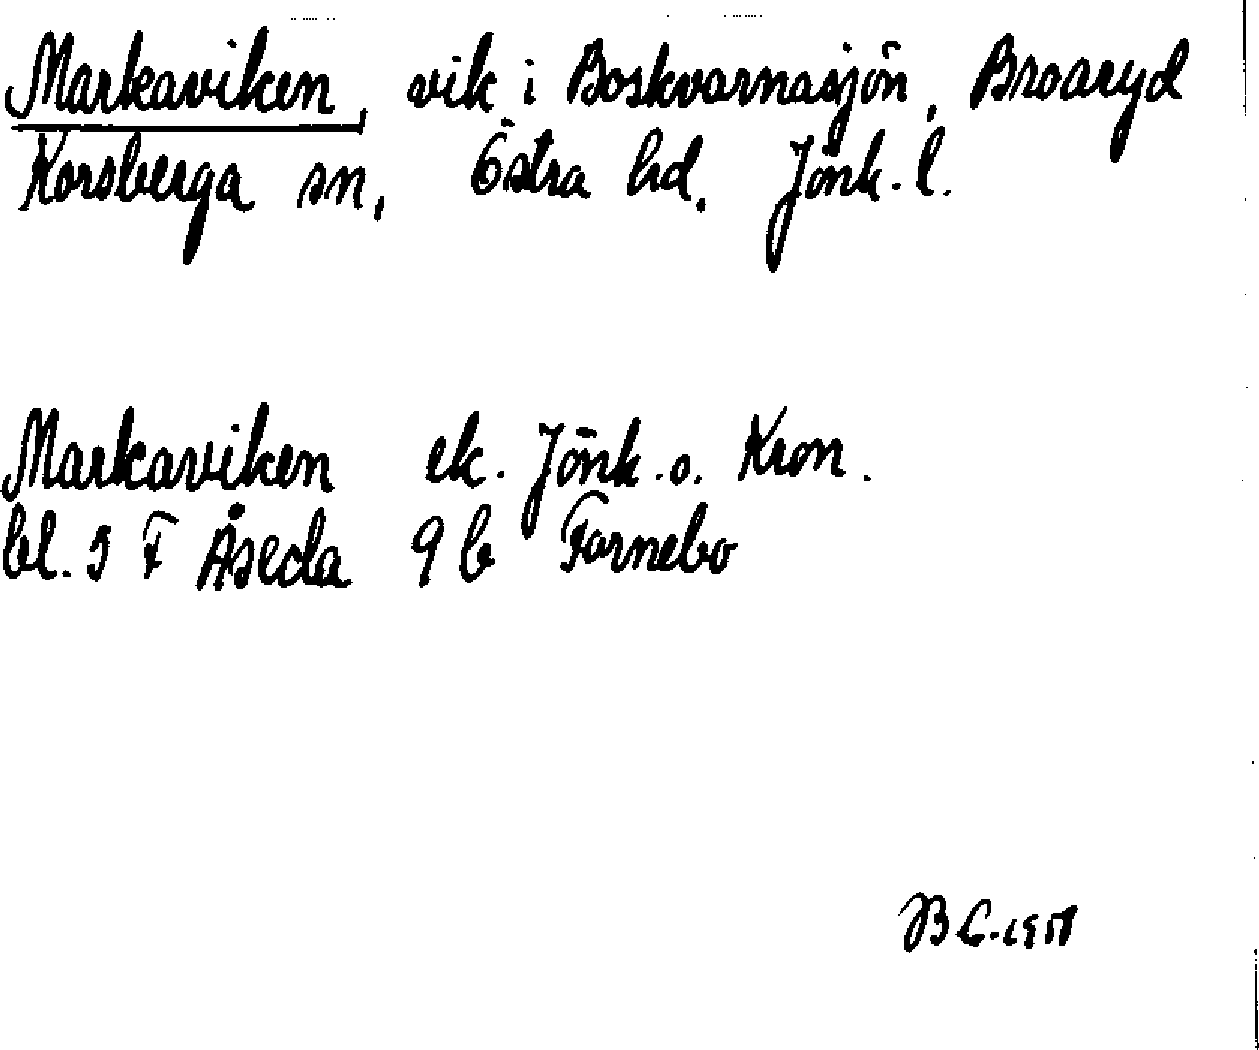 Markaviken, vik i Boskvarnasjön, Broaryd
Korsberga sn, Östra hd. Jönk. l.
Markaviken ek. Jönk. o. Kron.
bl. 5 F Åseda 9 b Farnebo